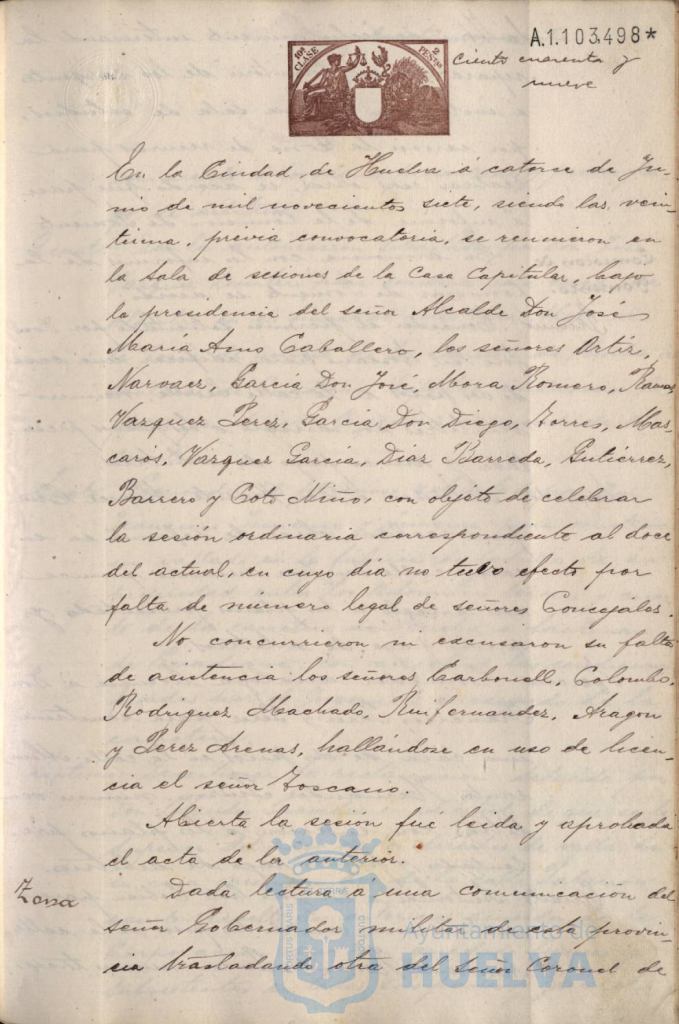 A.1.103,498*
10ª CLASE
2 PESTAS
Ciento cuarenta y
nueve
En la Ciudad de Huelva á catorce de Ju-
nio de mil novecientos siete, siendo las vein-
tiuna, previa convocatoria, se reunieron en
la Sala de sesiones de la Casa Capitular, bajo
la presidencia del señor Alcalde Don José
María Amo Caballero, los señores Ortiz,
Narvaez, García Don José, Mora Romero, Ramos,
Vazquez Perez, Garcia Don Diego, Torres, Mas-
carós, Vázquez García, Díaz Barreda, Gutiérrez,
Barrero y Coto Miño, con objeto de celebrar
la sesión ordinaria correspondiente al doce
del actual, en cuyo día no tuvo efecto por
falta de número legal de señores Concejales.
No concurrieron ni excusaron su falta
de asistencia los señores Carbonell, Colombo,
Rodriguez Machado, Ruifernandez, Aragon
y Perez Arenas, hallándose en uso de licen-
cia el señor Toscano.
Abierta la sesión fué leida y aprobada
el acta de la anterior.
Zona
Dada lectura á una comunicación del
señor Gobernador militar de esta provin-
cia trasladando otra del Señor Coronel de
Ayuntamiento de
HUELVA